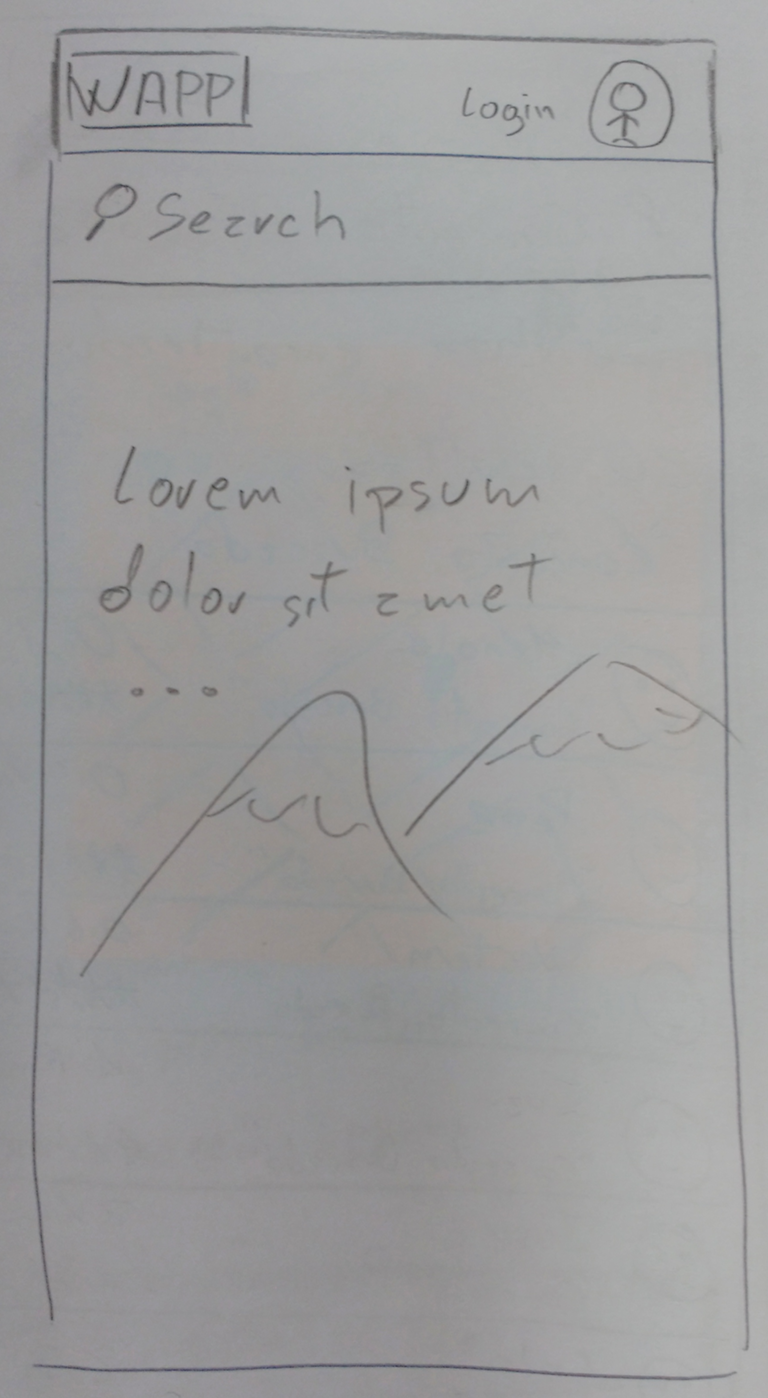 WAPP Login
Search
Lorem ipsum
dolor sit amet
...